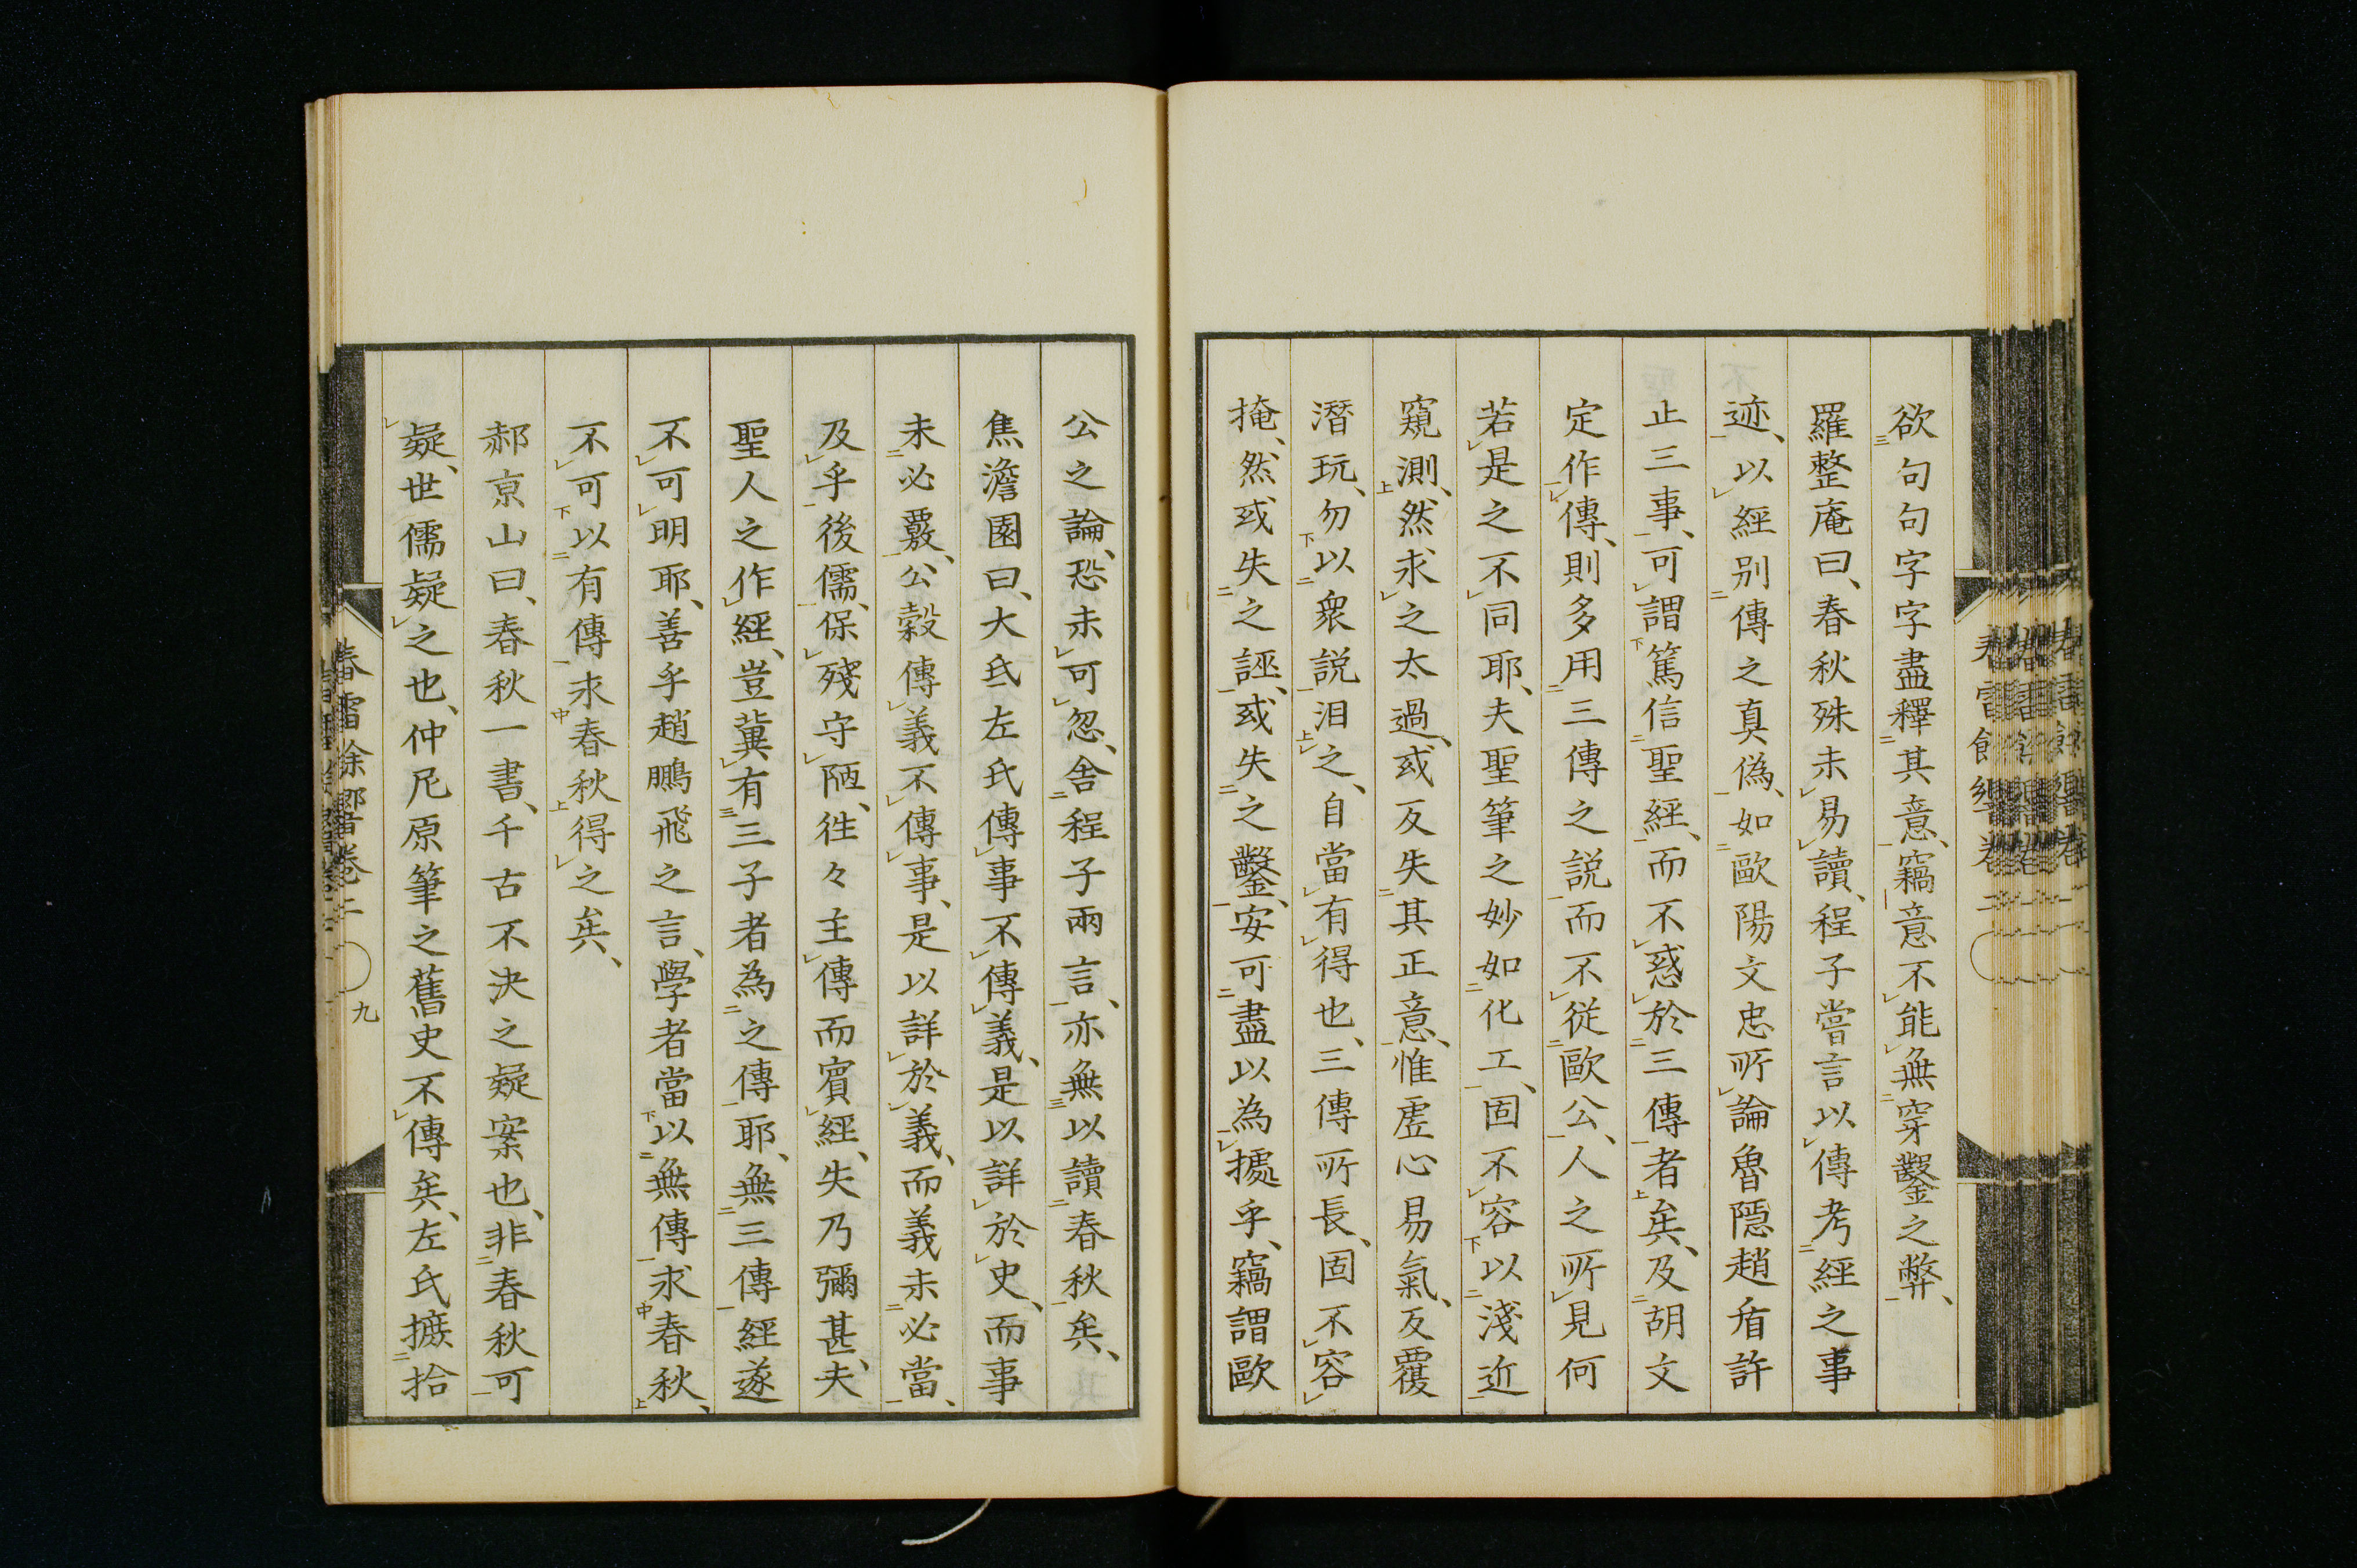 欲句句字字盡釋其意、竊意不能無穿鑿之弊、
羅整庵曰、春秋殊未易讀、程子嘗言以傳考經之事
迹、以經別傳之真偽、如歐陽文忠所論魯隱趙盾許
止三事、可謂篤信聖經、而不惑於三傳者矣、及胡文
定作傳、則多用三傳之説而不從歐公、人之所見何
若是之不同耶、夫聖筆之妙如化工、固不容以淺近
窺測、然求之太過、或反失其正意、惟虛心易氣、反覆
潛玩、勿以衆説汨之、自當有得也、三傳所長、固不容
掩、然或失之誣、或失之鑿、安可盡以為據乎、竊謂歐
公之論、恐未可忽、舍程子兩言、亦無以讀春秋矣、
焦澹園曰、大氐左氏傳事不傳義、是以詳於史、而事
未必覈、公穀傳義不傳事、是以詳於義、而義未必當、
及乎後儒、保殘守陋、徃々主傳而賓經、失乃彌甚、夫
聖人之作經、豈冀有三子者為之傳耶、無三傳經遂
不可明耶、善乎趙鵬飛之言、學者當以無傳求春秋、
不可以有傳求春秋得之矣、
郝京山曰、春秋一書、千古不決之疑案也、非春秋可
疑、世儒疑之也、仲尼原筆之舊史不傳矣、左氏摭拾
春霤餘響卷二
九